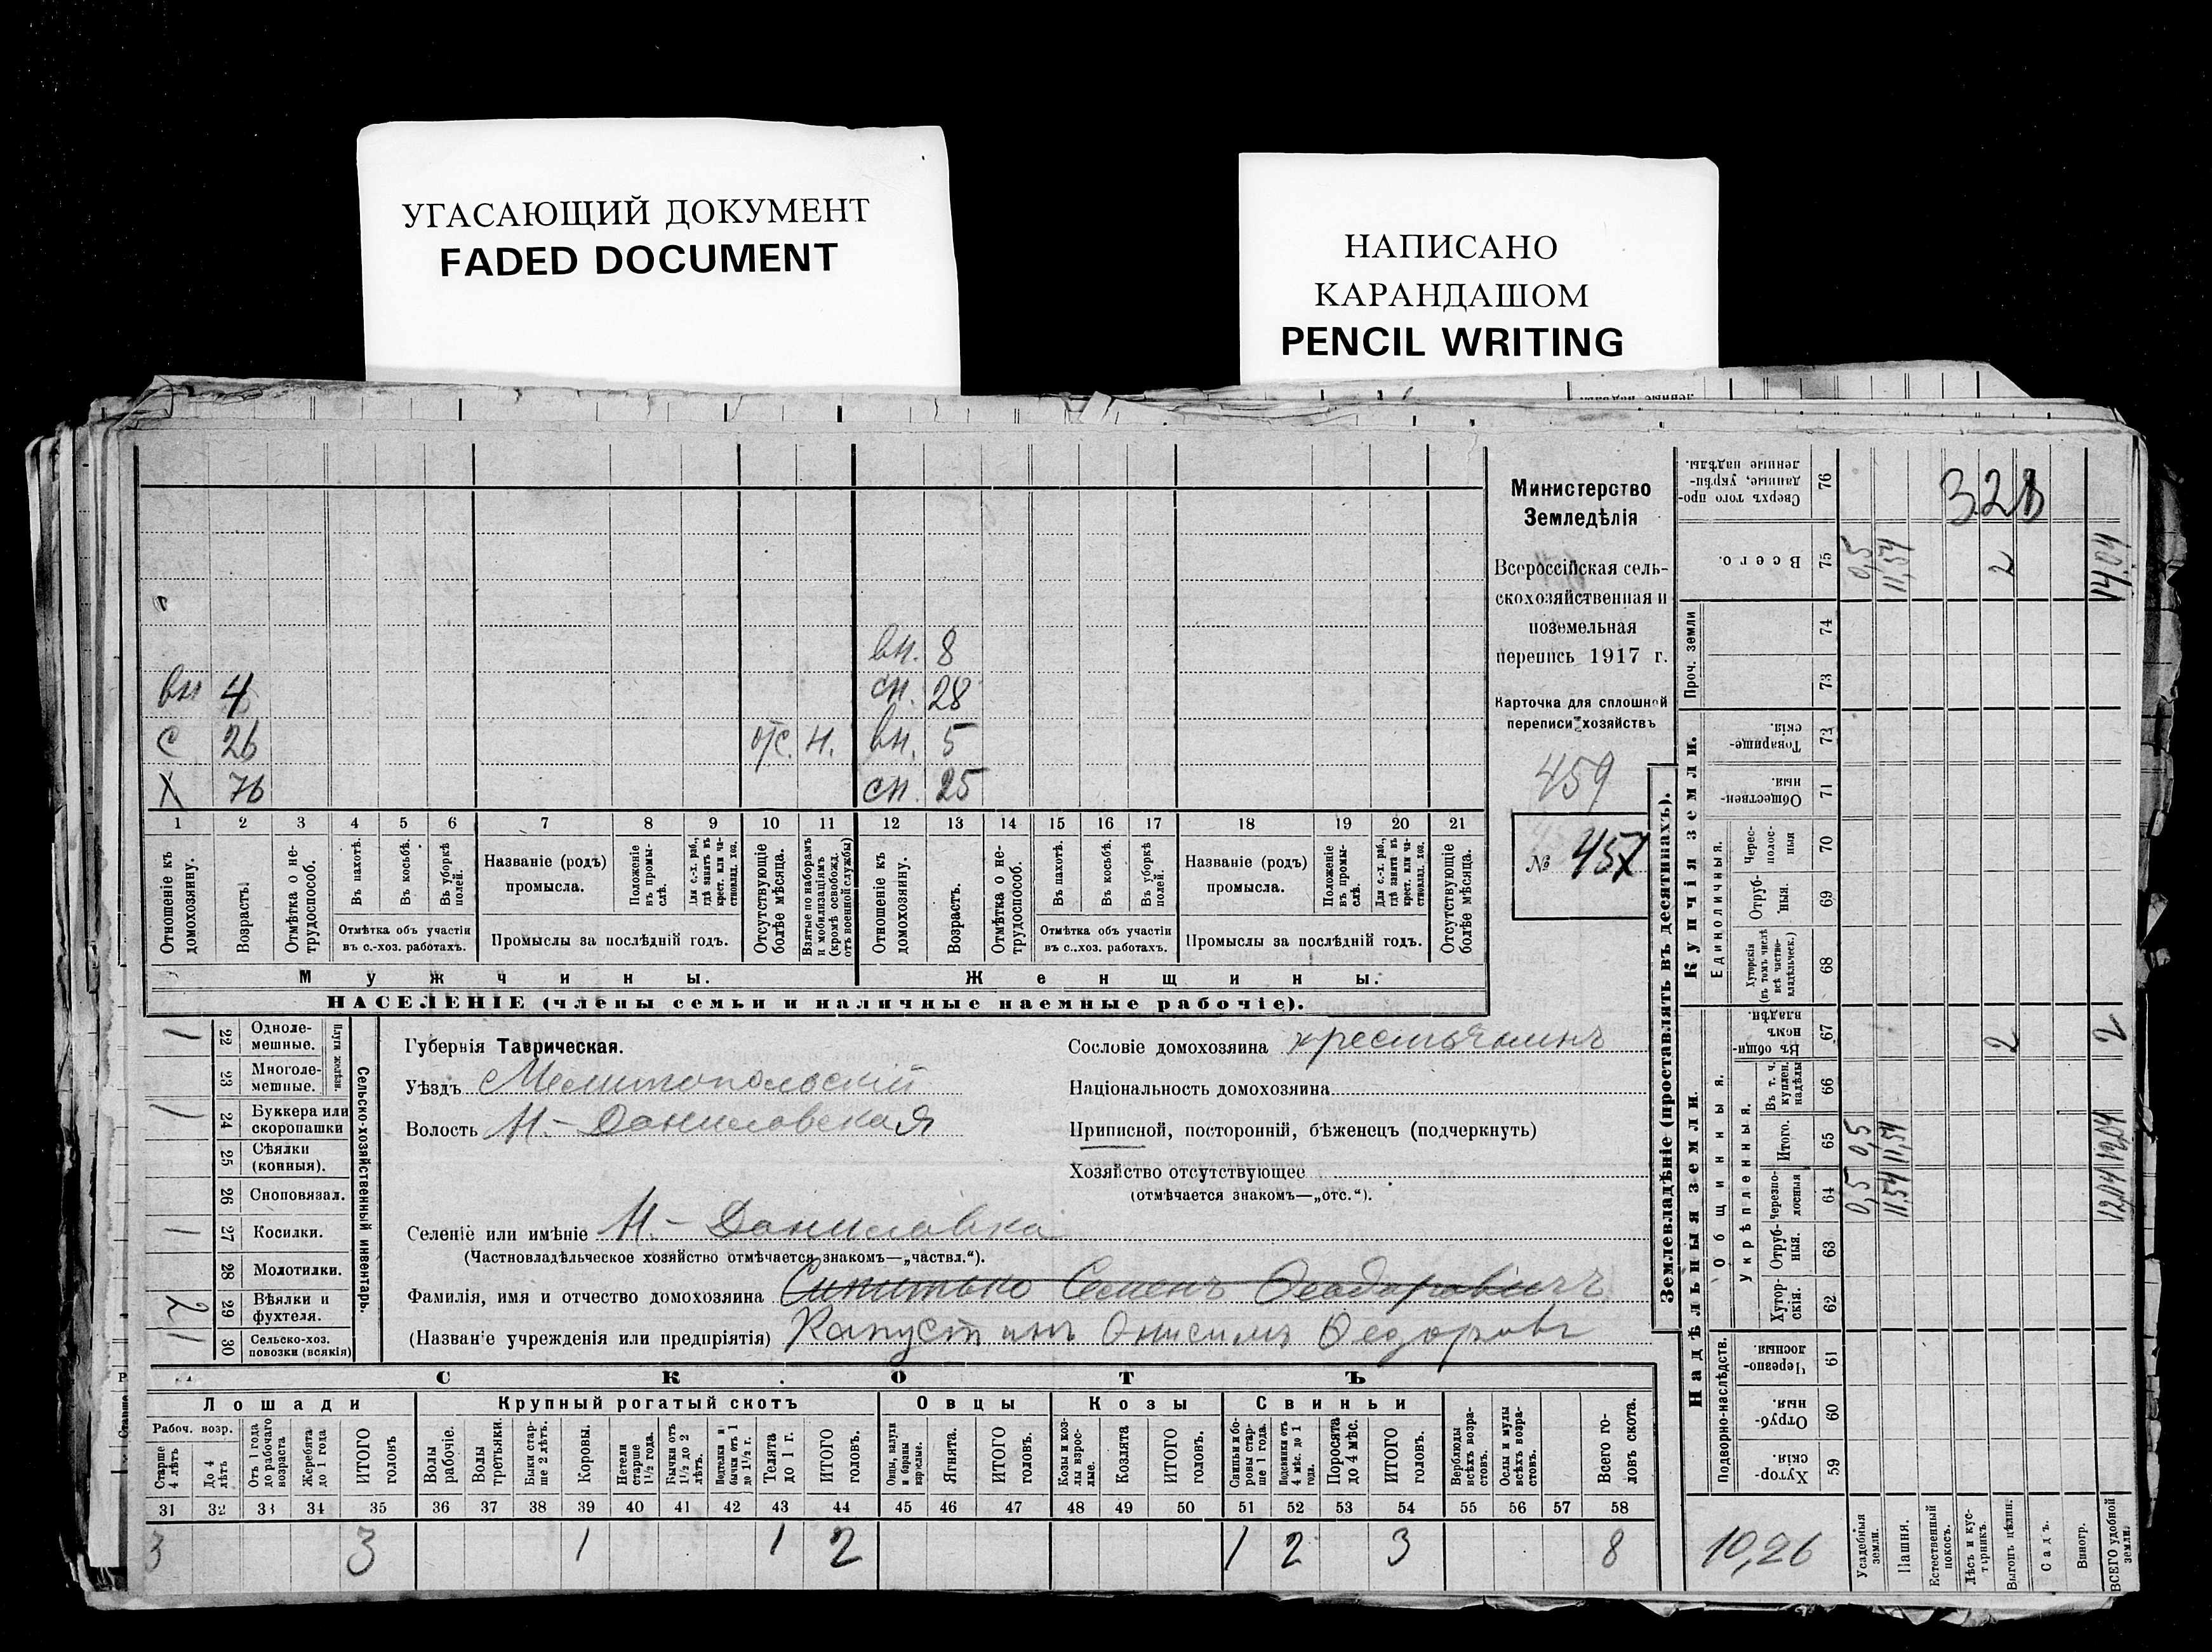 УГАСАЮЩИЙ ДОКУМЕНТ
FADED DOCUMENT
НАПИСАНО
КАРАНДАШОМ
PENCIL WRITING
вн. 8
вн 4 сн. 28
С 26 отс. н. вн. 5
X 76 сн. 25
1 2 3 4 5 6 7 8 9 10 11 12 13 14 15 16 17 18 19 20 21
Отношеніе къ домохозяину.
Возрастъ.
Отмѣтка о нетрудоспособ.
Въ пахотѣ.
Въ косьбѣ.
Въ уборкѣ полей.
Отмѣтка объ участіи въ с.-хоз. работахъ.
Названіе (родъ) промысла.
Положеніе въ промыслѣ.
Для с.-х. раб., гдѣ занятъ въ крест. или частновлад. хоз.
Промыслы за послѣдній годъ.
Отсутствующіе болѣе мѣсяца.
Взятые по наборамъ и мобилизаціямъ (кромѣ освобожд. отъ военной службы)
Отношеніе къ домохозяину.
Возрастъ.
Отмѣтка о нетрудоспособ.
Въ пахотѣ.
Въ косьбѣ.
Въ уборкѣ полей.
Отмѣтка объ участіи въ с..хоз. работахъ.
Названіе (родъ) промысла.
Положеніе въ промыслѣ.
Для с.-х. раб., гдѣ занятъ въ крест. или частновлад. хоз.
Промыслы за послѣдній годъ.
Отсутствующіе болѣе мѣсяца.
Мужчины. Женщины.
НАСЕЛЕНІЕ (члены семьи и наличные наемные рабочіе).
Министерство
Земледѣлія
Всероссійская сель-
скохозяйственная и
поземельная
перепись 1917 г.
Карточка для сплошной
переписи хозяйствъ
459
№ 457
Сельско-хозяйственный инвентарь.
Плуги желѣзн.
1 22 Однолемешные.
23 Многолемешные.
1 24 Буккера или скоропашки
25 Сѣялки (конныя).
26 Сноповязал.
1 27 Косилки.
28 Молотилки.
2 29 Вѣялки и фухтеля.
1 30 Сельско-хоз. повозки (всякія)
Губернія Таврическая.
Уѣздъ Мелитопольскій
Волость Н.-Даниловская
Селеніе или имѣніе Н.-Даниловка
(Частновладѣльческое хозяйство отмѣчается знакомъ—„частвл.“).
Фамилія, имя и отчество домохозяина Семенъ Феодоровичъ
(Названіе учрежденія или предпріятія) Капустинъ Онисимъ Федоровъ
Сословіе домохозяина крестьянинъ
Національность домохозяина
Приписной, посторонній, бѣженецъ (подчеркнуть)
Хозяйство отсутствующее
(отмѣчается знакомъ—„отс.“).
СКОТЪ
Лошади Крупный рогатый скотъ Овцы Козы Свиньи
Рабоч. возр.
Старше 4 лѣтъ
До 4 лѣтъ
Отъ 1 года до рабочаго возраста
Жеребята до 1 года
ИТОГО головъ
Волы рабочіе.
Волы третьяки.
Быки старше 2 лѣтъ.
Коровы.
Нетели старше 1½ года.
Бычки отъ 1½ до 2 лѣтъ.
бычки отъ 1 до 1½ г.
Телята до 1 г.
ИТОГО головъ.
Овцы, валухи и бараны взрослые.
Ягнята.
ИТОГО головъ.
Козы и козлы взрослые.
Козлята
ИТОГО головъ.
Свиньи и боровы старше 1 года.
Подсвинки отъ 4 мѣс. до 1 года.
Поросята до 4 мѣс.
ИТОГО головъ.
Верблюды всѣхъ возрастовъ.
Ослы и мулы всѣхъ возрастовъ.
Всего головъ скота.
31 32 33 34 35 36 37 38 39 40 41 42 43 44 45 46 47 48 49 50 51 52 53 54 55 56 57 58
3 3 1 1 2 1 2 3 8
Землевладѣніе (проставлять въ десятинахъ).
Купчія земли.
Надѣльныя земли.
Сверхъ того проданные, укрѣпленные надѣлы. 76
Всего. 75
Проч. земли 74 73
Товарищескія. 72
Общественныя 71
Единоличныя.
Чересполосныя 70
Отрубныя. 69
Хуторскія (въ томъ числѣ всѣ частновладѣльческ.) 68
Общинныя.
Въ общинномъ владѣн. 67
Укрѣпленныя.
Въ т. ч. куплен. надѣлы 66
Итого. 65
Черезполосныя 64
Отрубныя. 63
Хуторскія. 62
Подворно-наслѣдств.
Черезполосныя 61
Отрубныя 60
Хуторскія. 59
328
0,5 11,54 2 14,04
2 2
0,5 11,54 12,04
0,5 11,54 12,04
10,26
Усадебныя земли.
Пашня.
Естественный покосъ.
Лѣсъ и кустарникъ.
Выгонъ цѣлин.
Садъ.
Виногр.
ВСЕГО удобной земли.